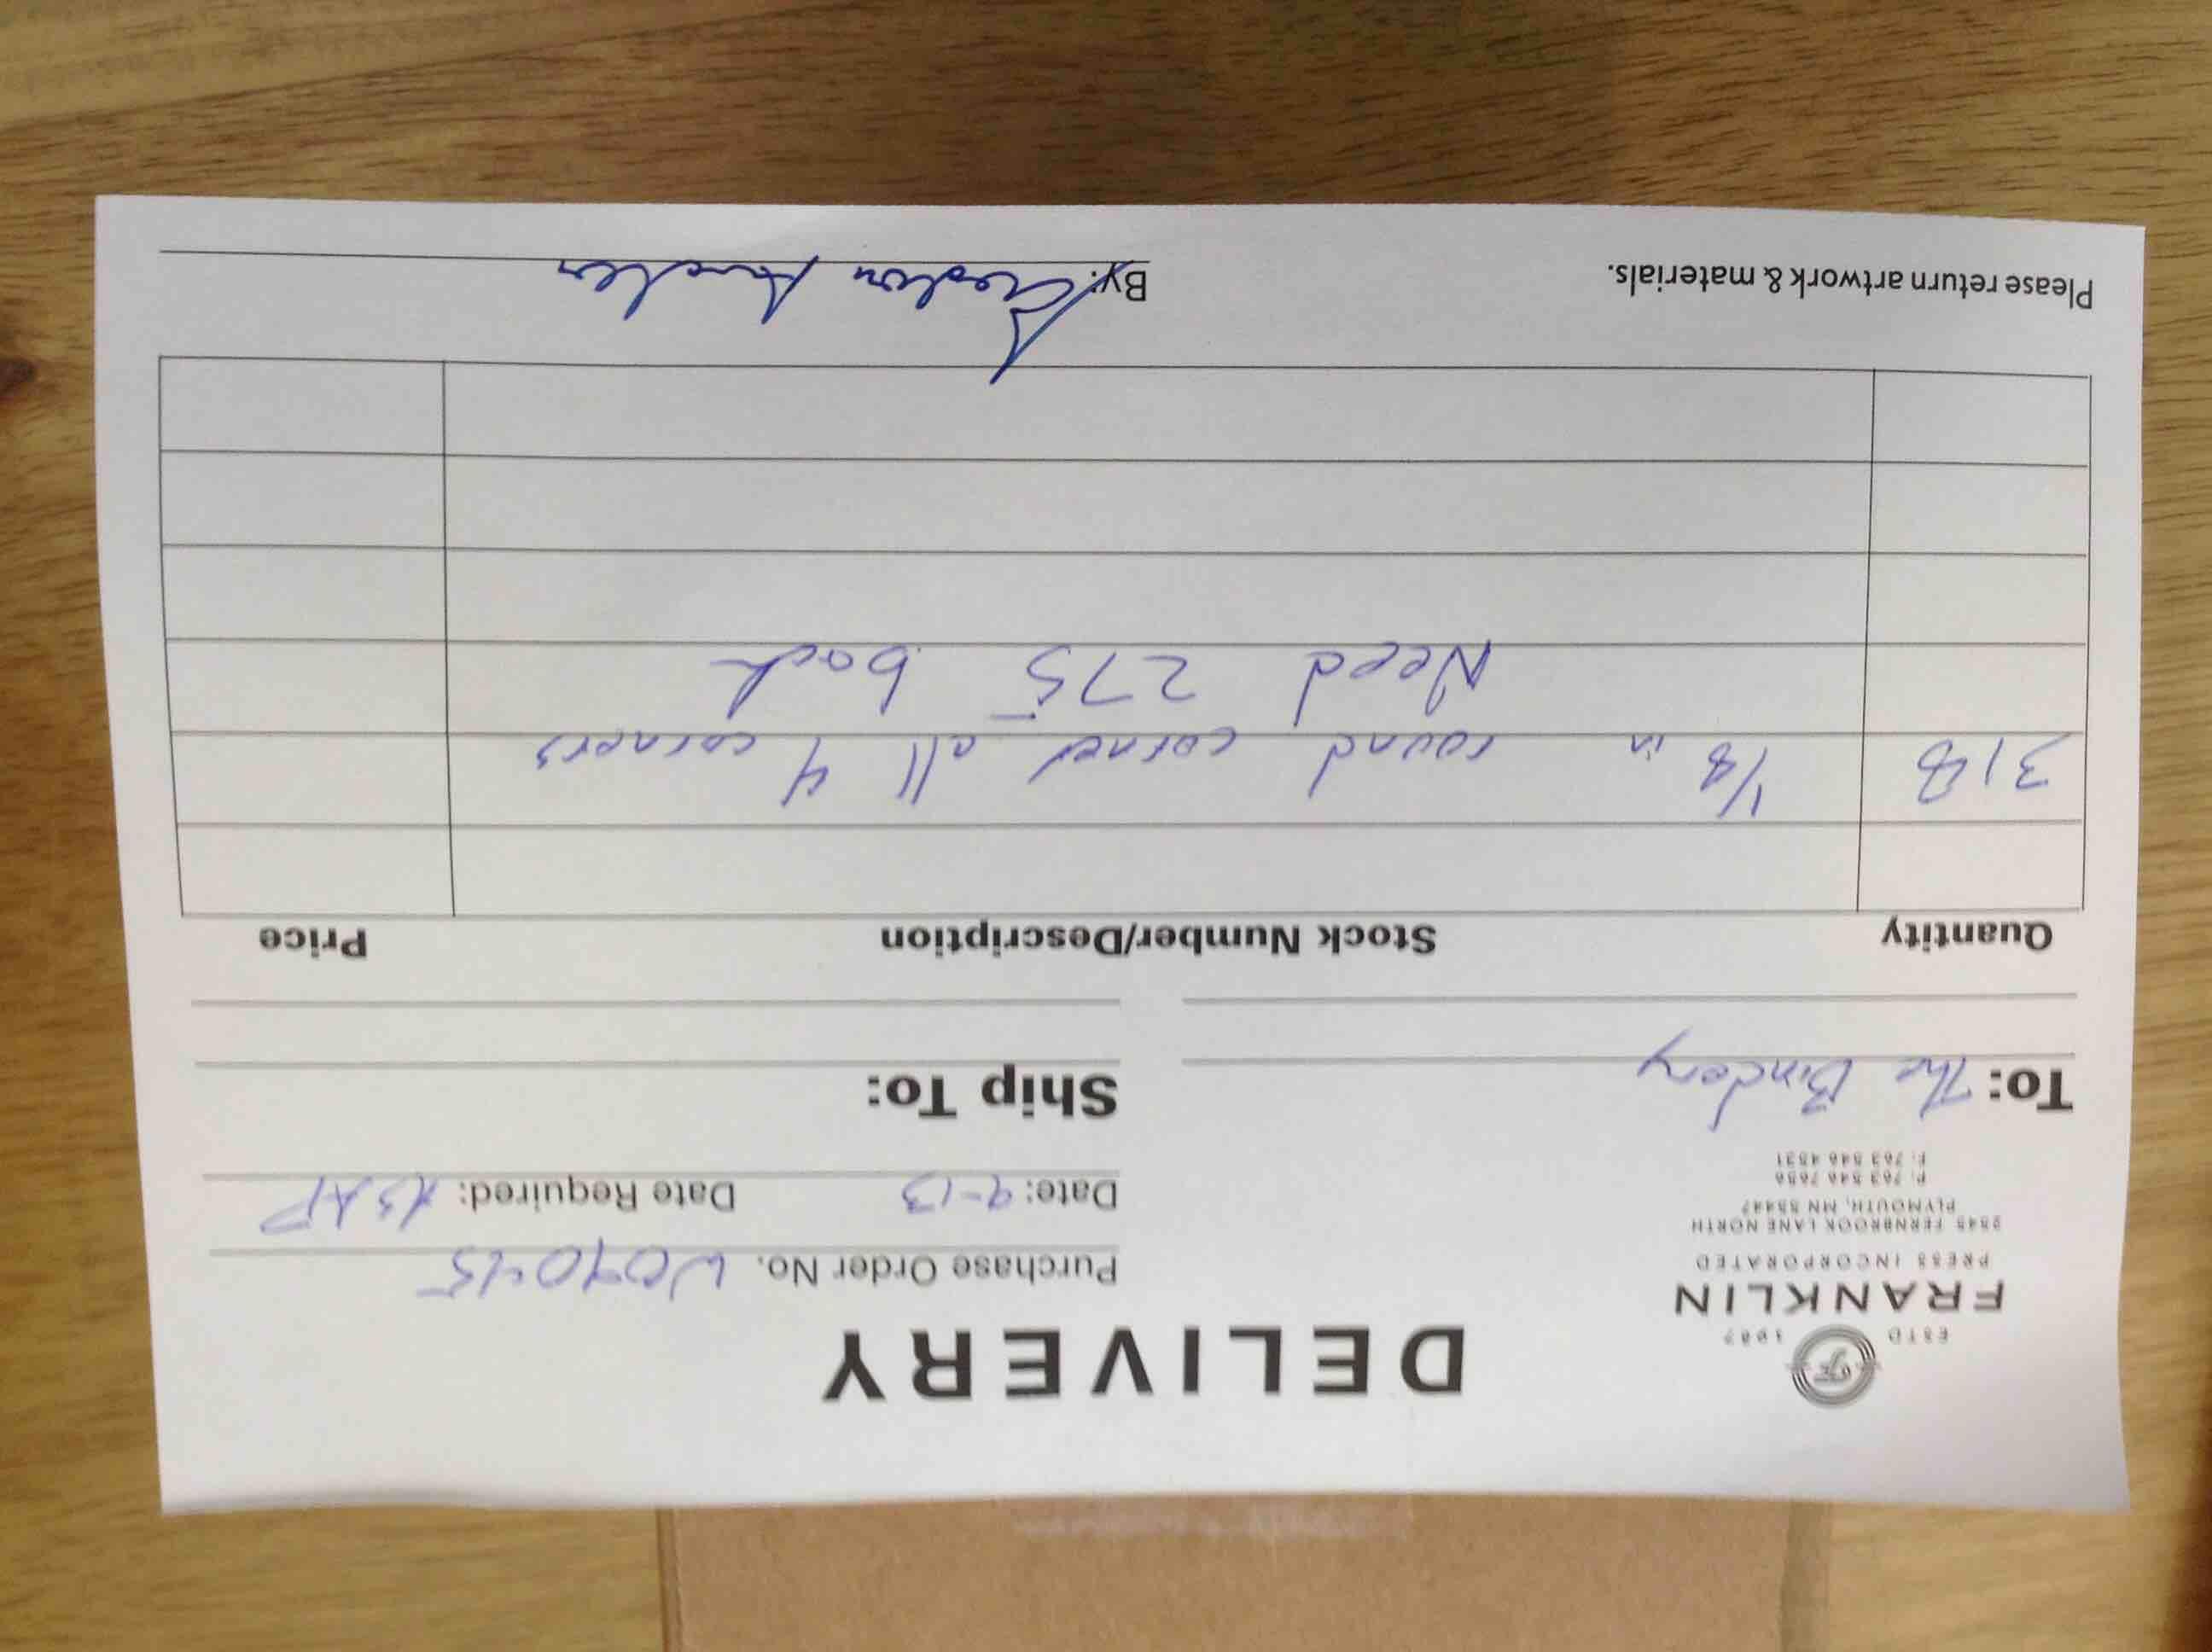 ESTD 1987
FRANKLIN
PRESS INCORPORATED
2545 FERNBROOK LANE NORTH
PLYMOUTH, MN 55447
P: 763 546 7656
F: 763 546 4531
DELIVERY
Purchase Order No.
Date: 9-13 Date Required:
To: The Bindery
Ship To:
Quantity Stock Number/Description Price
318 1/8 in round corner all 4 corners
Need 275 back
Please return artwork & materials.
By: